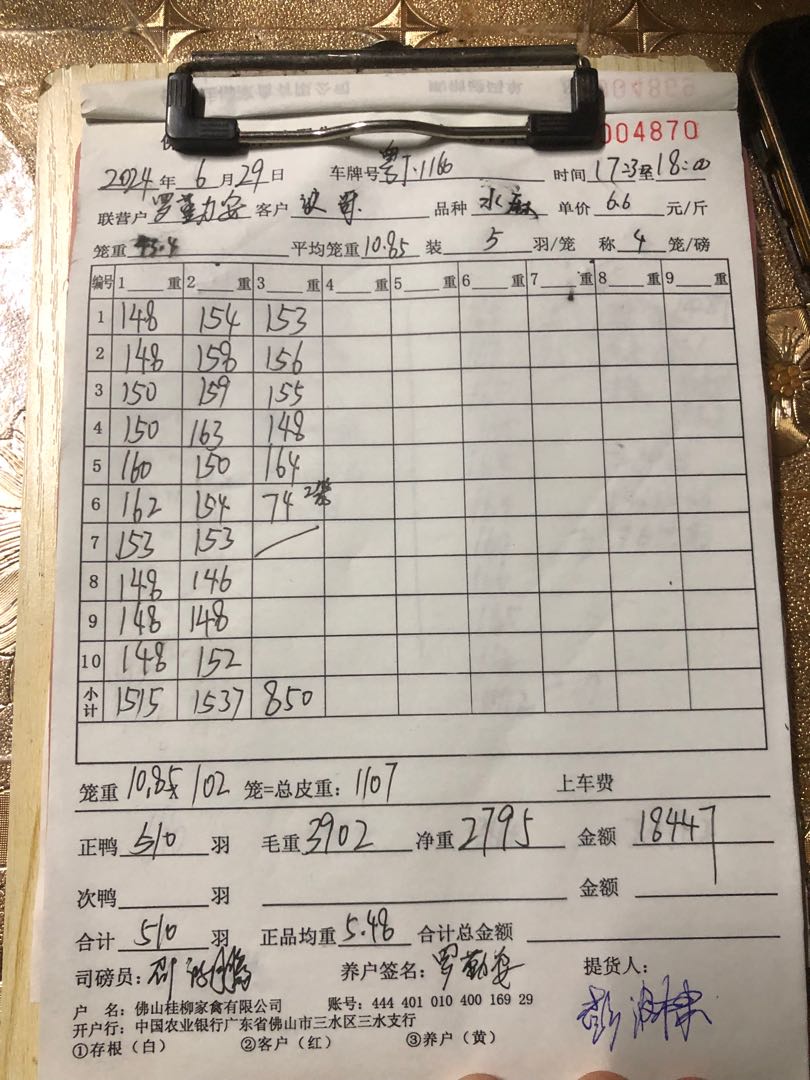 004870
2024年 6月29日 车牌号 1166 时间 17:23至18:00
联营户 罗勤安 客户 品种 水麻 单价 6.6 元/斤
笼重 43.4 平均笼重 10.85 装 5 羽/笼 称 4 笼/磅
编号 1 重 2 重 3 重 4 重 5 重 6 重 7 重 8 重 9 重
1 148 154 153
2 148 158 156
3 150 159 155
4 150 163 148
5 160 150 164
6 162 154 74 2笼
7 153 153
8 148 146
9 148 148
10 148 152
小计 1515 1537 850
笼重 10.85x 102 笼=总皮重: 1107 上车费
正鸭 510 羽 毛重 3902 净重 2795 金额 18447
次鸭 羽 金额
合计 510 羽 正品均重 5.48 合计总金额
司磅员: 养户签名: 罗勤安 提货人:
户 名: 佛山桂柳家禽有限公司 账号: 444 401 010 400 169 29
开户行: 中国农业银行广东省佛山市三水区三水支行
①存根（白） ②客户（红） ③养户（黄）